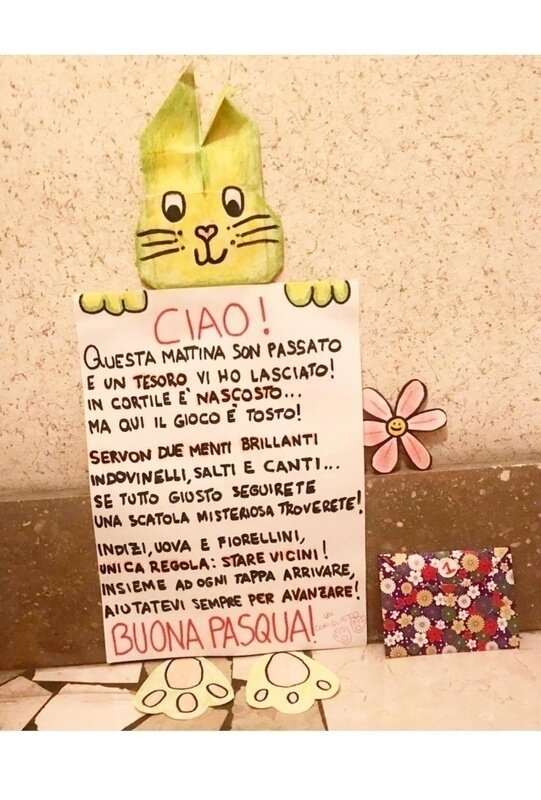 CIAO!
QUESTA MATTINA SON PASSATO
E UN TESORO VI HO LASCIATO!
IN CORTILE È NASCOSTO...
MA QUI IL GIOCO È TOSTO!
SERVON DUE MENTI BRILLANTI
INDOVINELLI, SALTI E CANTI...
SE TUTTO GIUSTO SEGUIRETE
UNA SCATOLA MISTERIOSA TROVERETE!
INDIZI, UOVA E FIORELLINI,
UNICA REGOLA: STARE VICINI!
INSIEME AD OGNI TAPPA ARRIVARE,
AIUTATEVI SEMPRE PER AVANZARE!
BUONA PASQUA!
UN
1